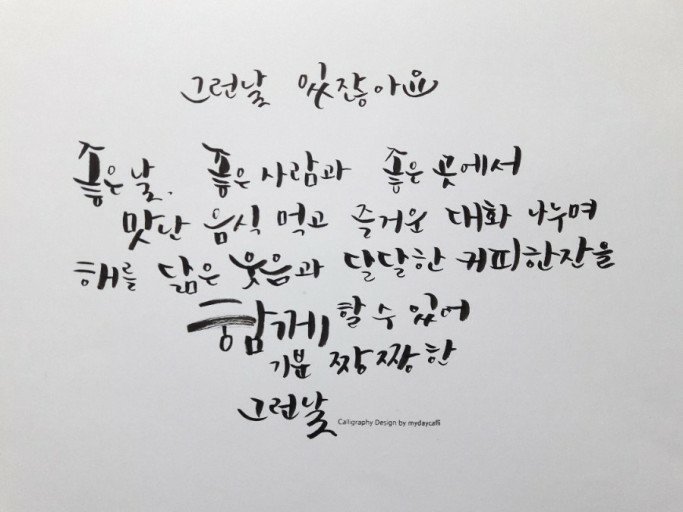 그런날 있잖아요
좋은날. 좋은사람과 좋은곳에서
맛난 음식 먹고 즐거운 대화 나누며
해를 닮은 웃음과 달달한 커피한잔을
함께 할 수 있어
기분 짱짱한
그런날
Calligraphy Design by mydaycafe